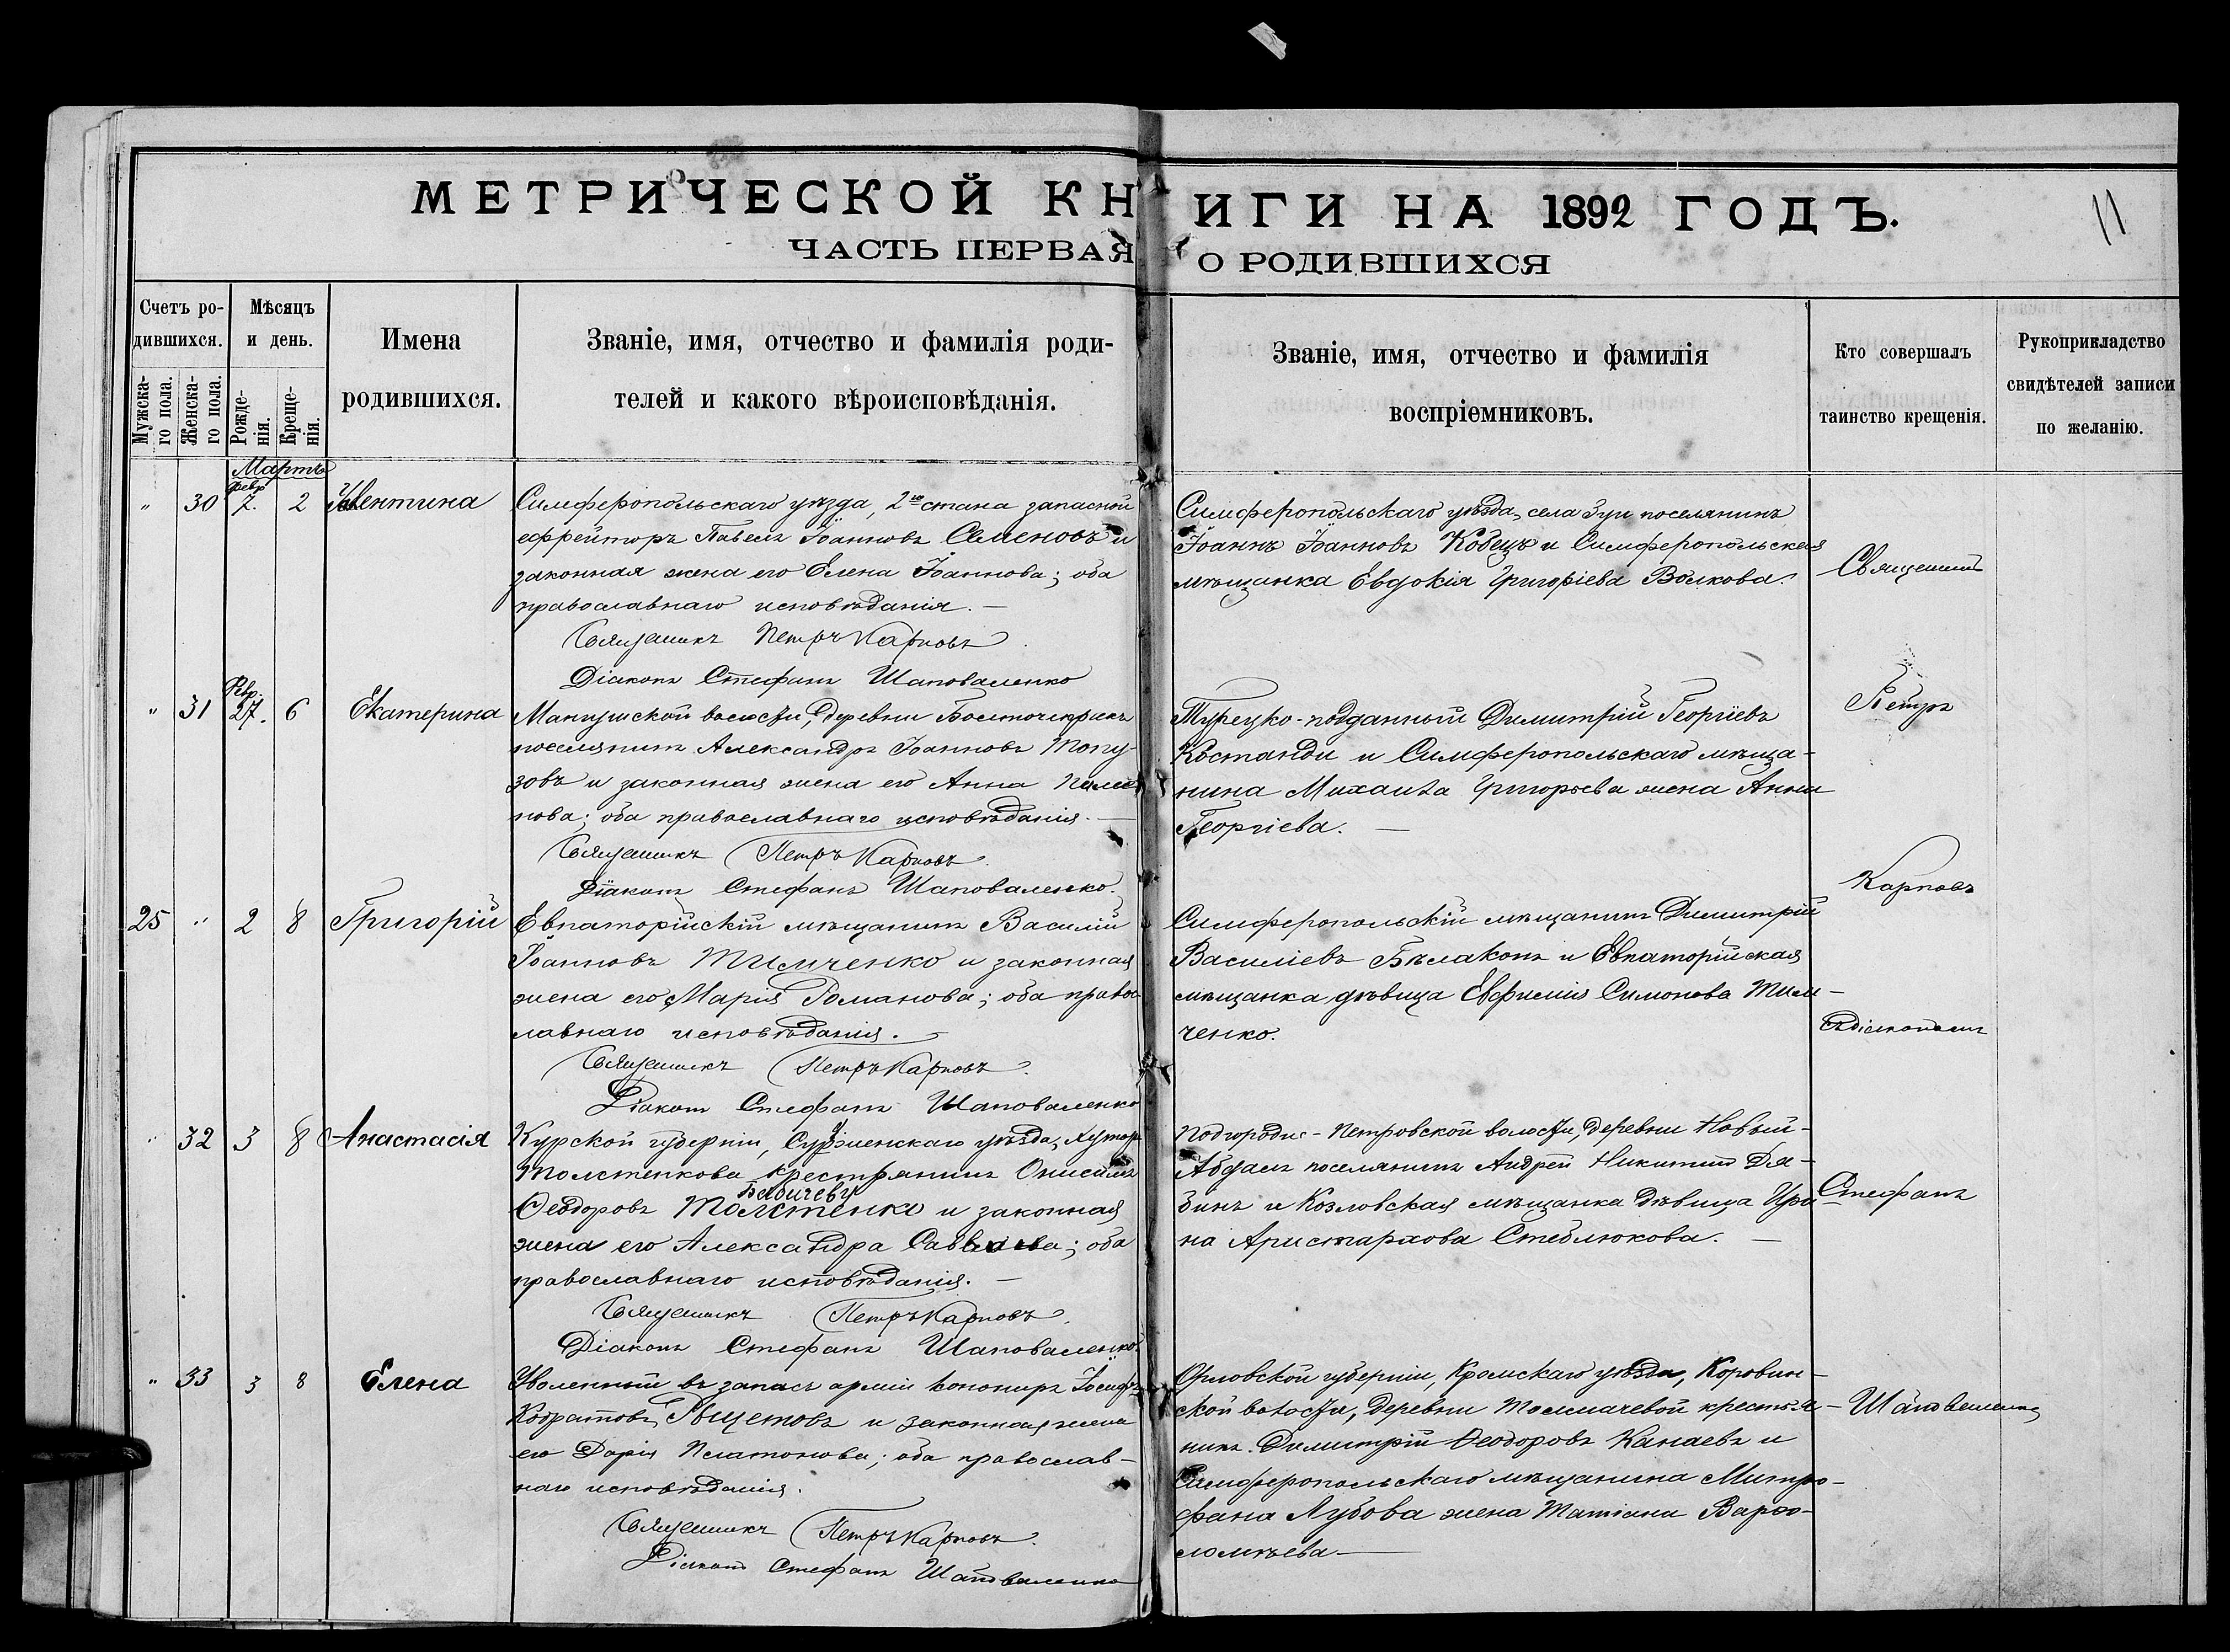 МЕТРИЧЕСКОЙ КНИГИ НА 1892 ГОДЪ.
11
ЧАСТЬ ПЕРВАЯ О РОДИВШИХСЯ
Счетъ ро-
дившихся.
Мужска-
го пола.
Женска-
го пола.
Мѣсяцъ
и день.
Рожде-
нія.
Креще-
нія.
Имена
родившихся.
Званіе, имя, отчество и фамилія роди-
телей и какого вѣроисповѣданія.
Званіе, имя, отчество и фамилія
воспріемниковъ.
Кто совершалъ
таинство крещенія.
Рукоприкладство
свидѣтелей записи
по желанію.
Мартъ
февр
" 30 7. 2
Симферопольскаго уѣзда, 2го стана запасной
ефрейторъ Павелъ Іоанновъ Семеновъ и
законная жена его Елена Іоаннова; оба
православнаго исповѣданія. —
Священникъ Петръ Карповъ
Діаконъ Стефанъ Шаповаленко
Симферопольскаго уѣзда, села Зуи поселянинъ
Іоаннъ Іоанновъ Кобецъ и Симферопольская
мѣщанка Евдокія Григоріева Волкова.
Священникъ
Петръ
Карповъ
съ діакономъ
Стефанъ
Шаповаленко
Февр.
" 31 27. 6 Екатерина
Мангушской волости, деревни
поселянинъ Александръ Іоанновъ Топу-
зовъ и законная жена его Анна
нова; оба православнаго исповѣданія. —
Священникъ Петръ Карповъ
Діаконъ Стефанъ Шаповаленко.
Турецко-подданный Димитрій Георгіевъ
Костанди и Симферопольскаго мѣща-
нина Михаила Григорьева жена Анна
Георгіева. —
25 " 2 8 Григорій
Евпаторійскій мѣщанинъ Василій
Іоанновъ Тимченко и законная
жена его Марія Романова; оба правос
лавнаго исповѣданія. —
Священникъ Петръ Карповъ.
Діаконъ Стефанъ Шаповаленко
Симферопольскій мѣщанинъ Димитрій
Василіевъ Бѣлаконь и Евпаторійская
мѣщанка дѣвица Евфимія Симонова Тим-
ченко.
" 32 3 8 Анастасія
Курской губерніи, уѣзда, хутора
Толстенкова крестьянинъ Онисимъ
Феодоровъ Толстенко и законная
жена его Александра оба
православнаго исповѣданія. —
Священникъ Петръ Карповъ.
Діаконъ Стефанъ Шаповаленко
Подгородне-Петровской волости, деревни Новый-
Абдалъ поселянинъ Андрей Никитинъ Дя-
бинъ и Козловская мѣщанка дѣвица Ири
на Аристархова Стеблюкова. —
" 33 3 8 Елена
Уволенный въ запасъ арміи канониръ Іосифъ
Кодратовъ и законная жена
его Дарія Платонова; оба православ-
наго исповѣданія.
Священникъ Петръ Карповъ.
Діаконъ Стефанъ Шаповаленко
Орловской губерніи, Кромскаго уѣзда, Коровин-
ской волости, деревни Толмачевой крестья-
нинъ Димитрій Феодоровъ Канаевъ и
Симферопольскаго мѣщанина Митро-
фана Лубова жена Татіана Варфо-
ломѣева —